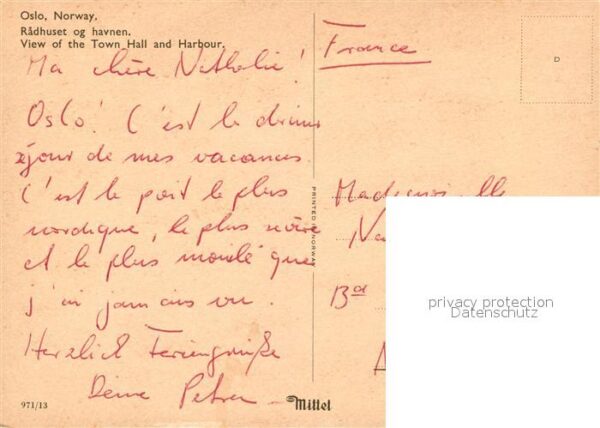 Oslo, Norway.
Rådhuset og havnen.
View of the Town Hall and Harbour.
Ma chère Nathalie!
Oslo! C'est le dernier
séjour de mes vacances.
C'est le port le plus
nordique, le plus
et le plus que
j'ai jamais vu.
Herzlich Feriengrüße
Deine Petra
971/13
Mittet
PRINTED IN NORWAY
France
D
Mademoiselle
Na
Bd
privacy protection
Datenschutz